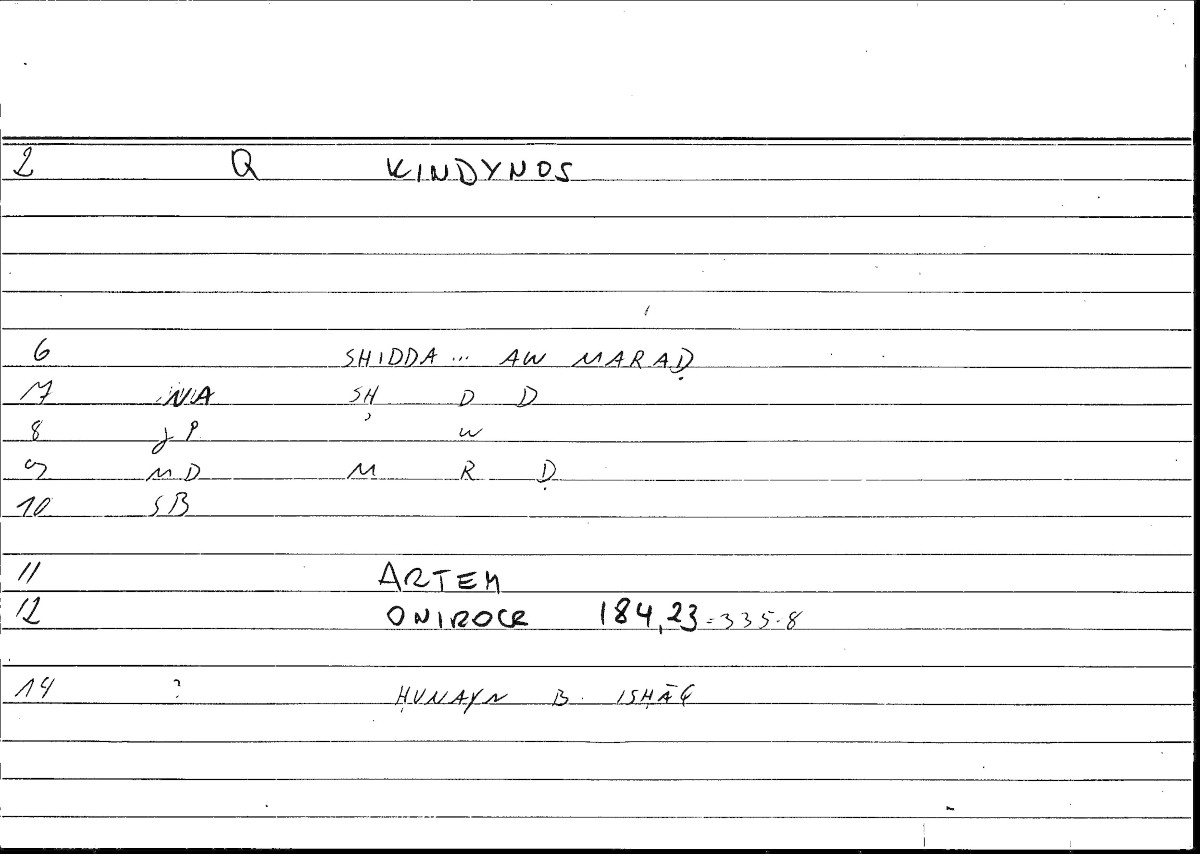 2 Q KINDYNOS
6 SHIDDA ... AW MARAḌ
7 NA SH D D
8 JP ʾ W
9 MD M R Ḍ
10 SB
11 ARTEM
12 ONIROCR 184,23 = 335.8
14 ? ḤUNAYN B. ISḤĀQ